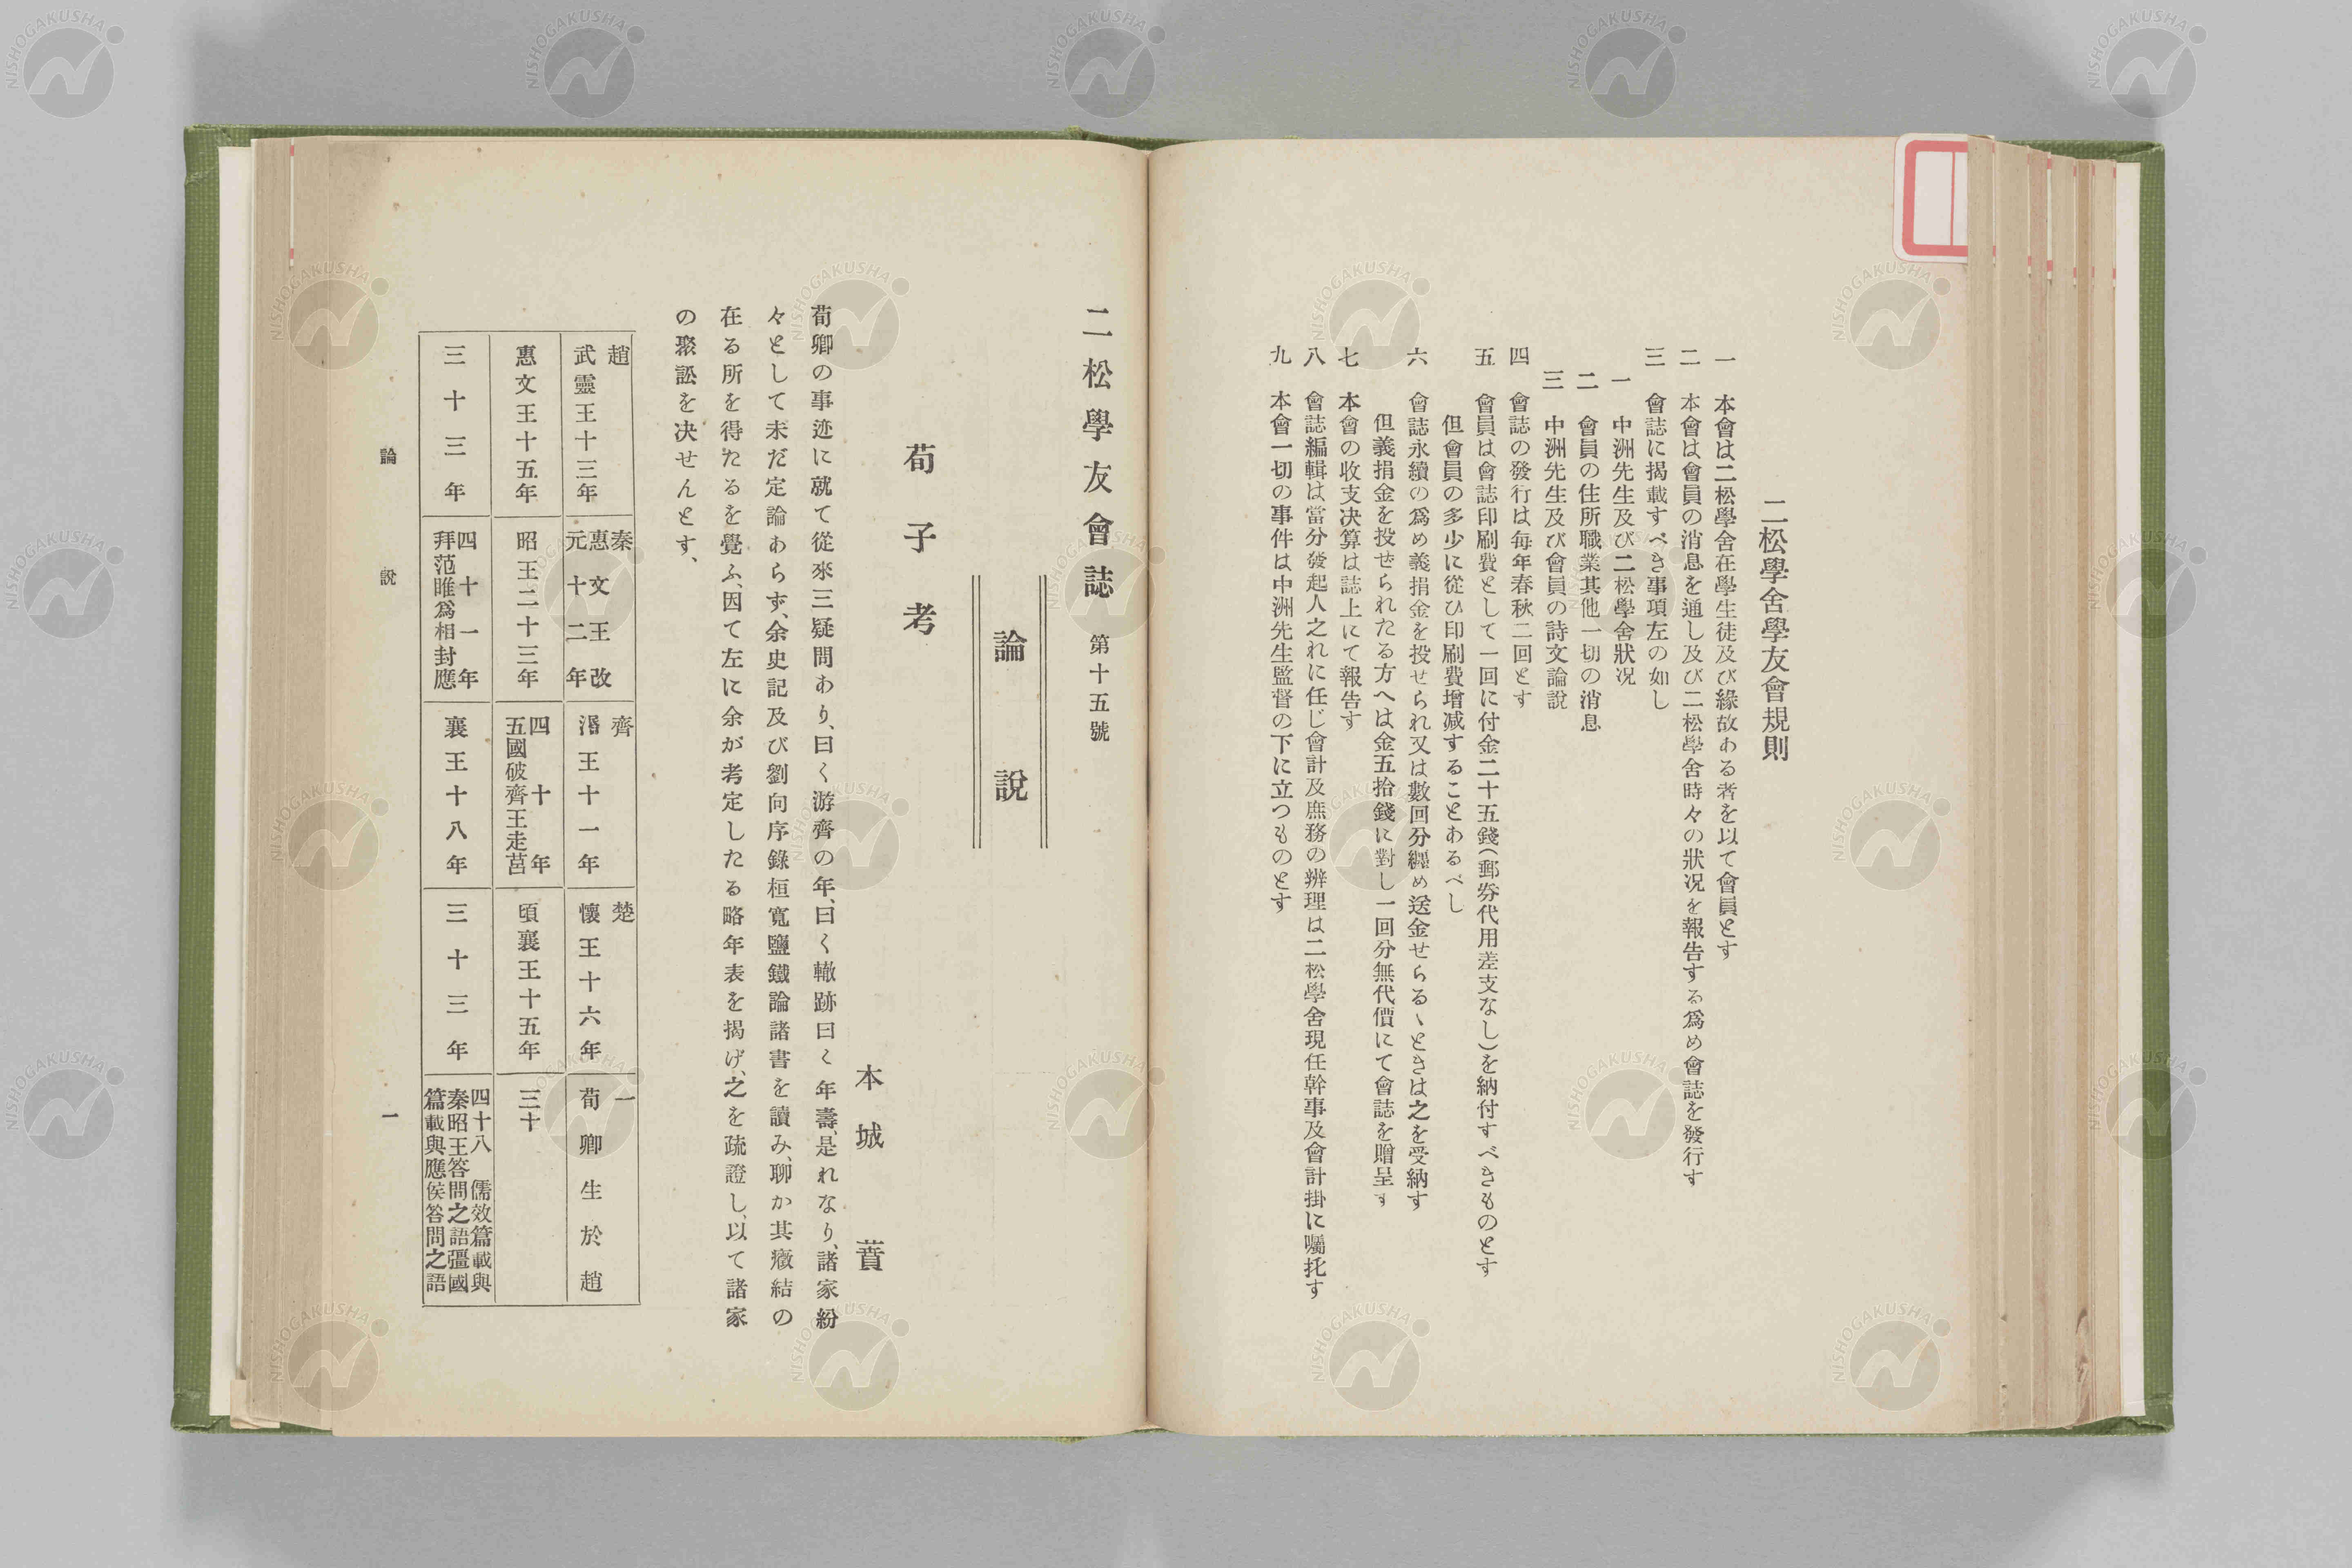 二松學舍學友會規則
一　本會は二松學舍在學生徒及び緣故ある者を以て會員とす
二　本會は會員の消息を通し及び二松學舍時々の狀況を報告する爲め會誌を發行す
三　會誌に揭載すべき事項左の如し
一　中洲先生及び二松學舍狀況
二　會員の住所職業其他一切の消息
三　中洲先生及び會員の詩文論說
四　會誌の發行は每年春秋二回とす
五　會員は會誌印刷費として一回に付金二十五錢(郵券代用差支なし)を納付すべきものとす
但會員の多少に從ひ印刷費增减することあるべし
六　會誌永續の爲め義捐金を投せられ又は數回分纒め送金せらるゝときは之を受納す
但義捐金を投せられたる方へは金五拾錢に對し一回分無代價にて會誌を贈呈す
七　本會の收支决算は誌上にて報告す
八　會誌編輯は當分發起人之れに任じ會計及庶務の辨理は二松學舍現任幹事及會計掛に囑托す
九　本會一切の事件は中洲先生監督の下に立つものとす
二松學友會誌　第十五號
論說
荀子考
本城　蕡
荀卿の事迹に就て從來三疑問あり、曰く游齊の年、曰く轍跡曰く年壽、是れなり、諸家紛
々として未だ定論あらず、余史記及び劉向序錄桓寬鹽鐵論諸書を讀み、聊か其癥結の
在る所を得たるを覺ふ、因て左に余が考定したる略年表を揭げ、之を疏證し、以て諸家
の聚訟を决せんとす、
趙
武靈王十三年
秦
惠文王改
元十二年
齊
湣王十一年
楚
懷王十六年
一
荀卿生於趙
惠文王十五年
昭王二十三年
四十年
五國破齊王走莒
頃襄王十五年
三十
三十三年
四十一年
拜范睢爲相封應
襄王十八年
三十三年
四十八　儒效篇載與
秦昭王答問之語彊國
篇載與應侯答問之語
論說
一
NISHOGAKUSHA